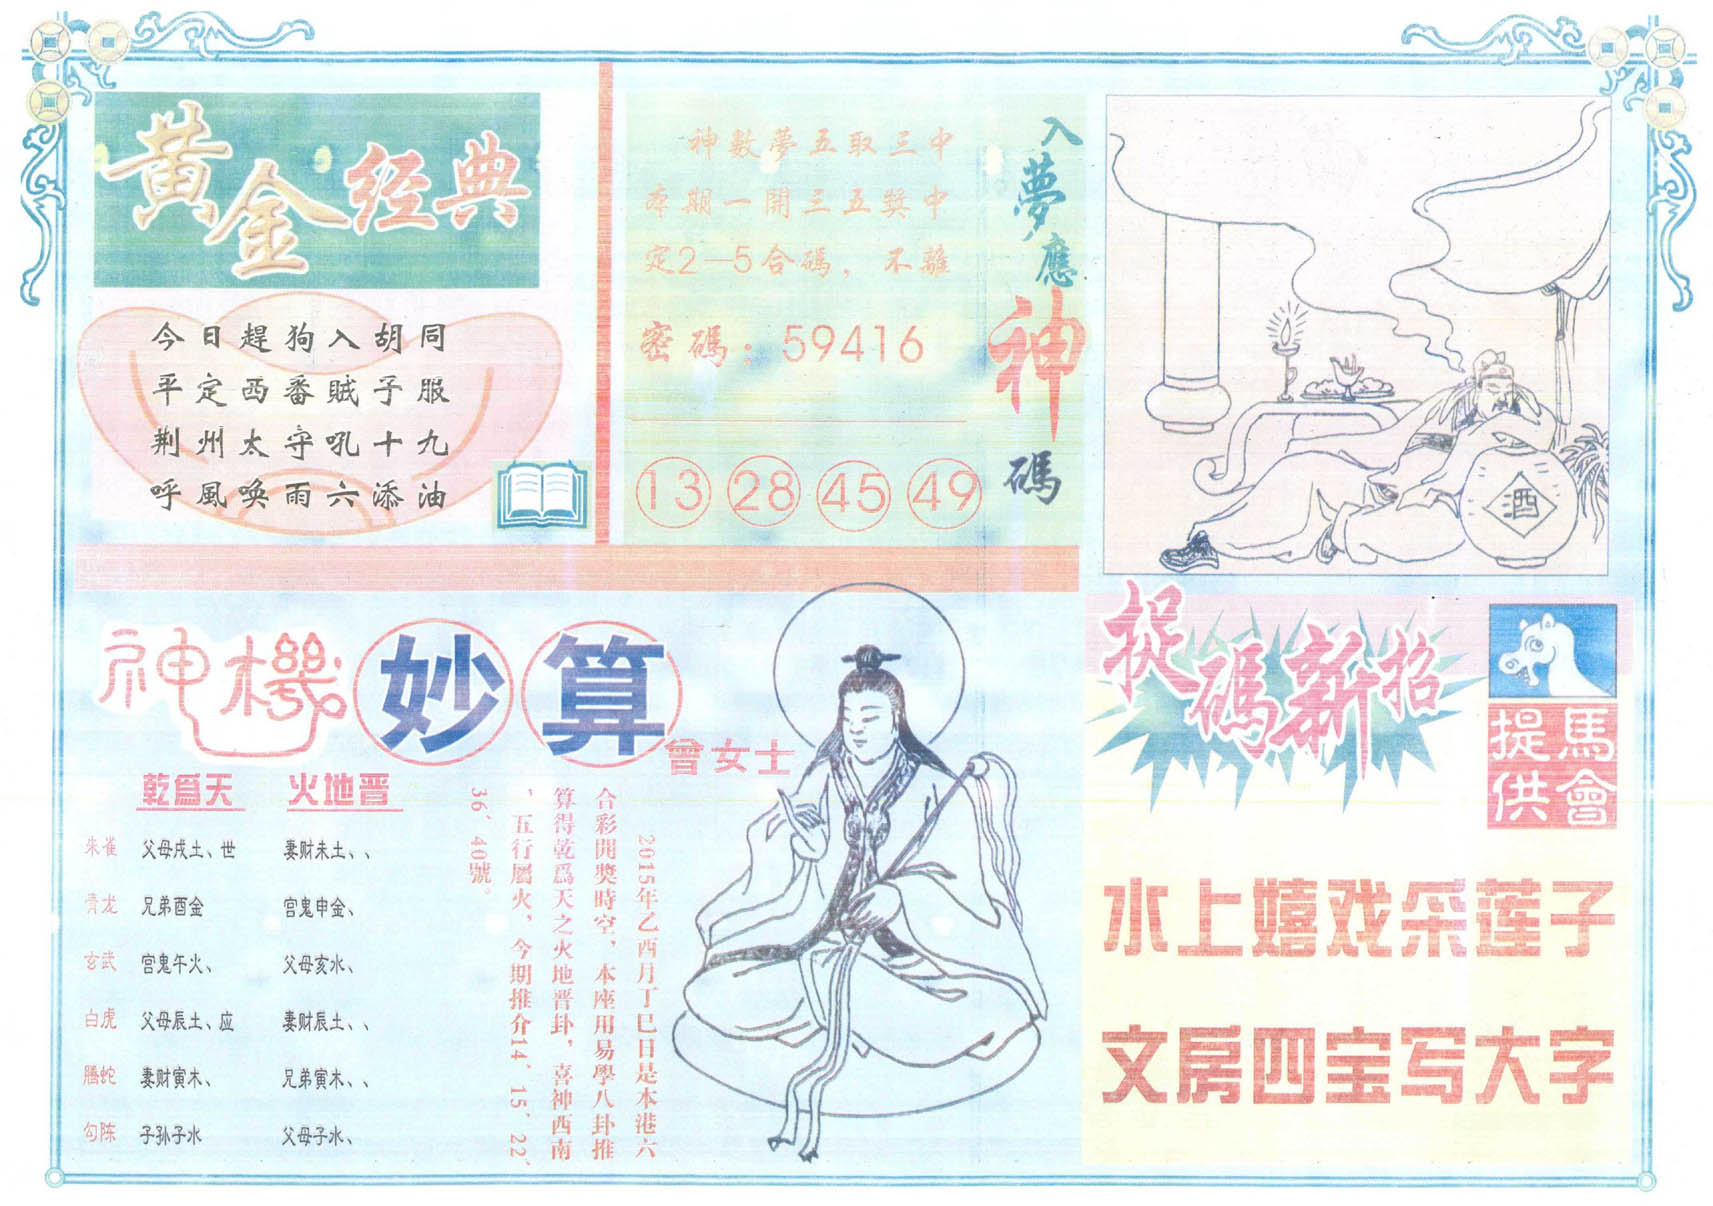 黃金经典
今日趕狗入胡同
平定西番賊子服
荆州太守吼十九
呼風喚雨六添油
神數夢五取三中
本期一開三五獎中
定2—5合碼，不離
密碼：59416
13 28 45 49
入夢應神碼
酒
神機妙算
曾女士
乾爲天 火地晋
朱雀 父母戌土、世 妻财未土、、
青龙 兄弟酉金 宫鬼申金、
玄武 宫鬼午火、 父母亥水、
白虎 父母辰土、应 妻财辰土、、
螣蛇 妻财寅木、 兄弟寅木、、
勾陈 子孙子水 父母子水、
2015年乙酉月丁巳日是本港六
合彩開獎時空，本座用易學八卦推
算得乾爲天之火地晋卦，喜神西南
，五行屬火，今期推介14、15、22、
36、40號。
捉碼新招
馬會
提供
水上嬉戏采莲子
文房四宝写大字